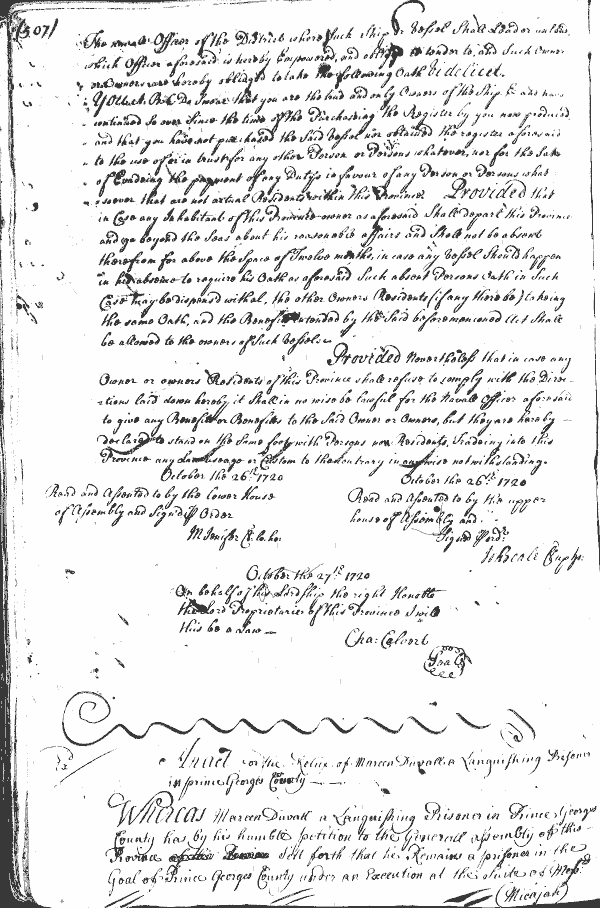 (507)
The navale Officer of the District where such Ship or Vessel Shall Load or unload
which Officer aforesaid is hereby Empowered, and obliged to tender to, and Such Owner
or Owners are hereby obliged to take the following Oath Videlicet.
You A. B. Do Swear that you are the true and only Owners of the Ship E. and have
continued so ever Since the time of the Purchasing the Register by you now produced
and that you have not purchased the Said Vessel nor obtained the register aforesaid
to the use of or in trust for any other Person or Persons whatever, nor for the Sake
of Evadeing the payment of any Dutys in favour of any Person or Persons what
soever that are not actual Residents within this Province. Provided that
in Case any Inhabitant of this Province owner as aforesaid Shall depart this Province
and go beyond the Seas about his reasonable affairs and Shall not be absent
therefrom for above the Space of Twelve months, in case any Vessel Should happen
in his absence to require his Oath as aforesaid Such absent Persons Oath in Such
Case may be dispensed withal, the other Owners Residents (if any there be) takeing
the same Oath, and the Benefits intended by the Said beforemenconed Act Shall
be allowed to the owners of Such Vessels.
Provided Nevertheless that in case any
Owner or owners Residents of this Province shall refuse to comply with the Direc-
-tions laid down hereby it Shall in no wise be lawful for the Navale Officer aforesaid
to give any Benefit or Benefits to the Said Owner or Owners, but they are hereby
declared to stand on the Same foot with Persons non Residents, Tradeing into this
Province any Law usage or Custom to the contrary in any wise notwithstanding.
October the 26th 1720
Read and Assented to by the Lower House
of Assembly and Signd p Order
M Jenifer Cl lo ho.
October the 26th 1720
Read and Assented to by the upper
house of Assembly and
Signd p ordr
October the 27th 1720
On behalf of his Lordship the right Honoble
the Lord Proprietarie of this Province I will
this be a Law
Cha: Calvert
An Act for the Relief of Mareen Duvall a Languishing Prisoner
in prince Georges County
Whereas Mareen Duvall a Languishing Prisoner in Prince Georges
County has by his humble petition to the Generall assembly of this
Province Sett forth that he Remains a prisoner in the
Goal of Prince Georges County under an Execution at the Suite of
(Micajah)